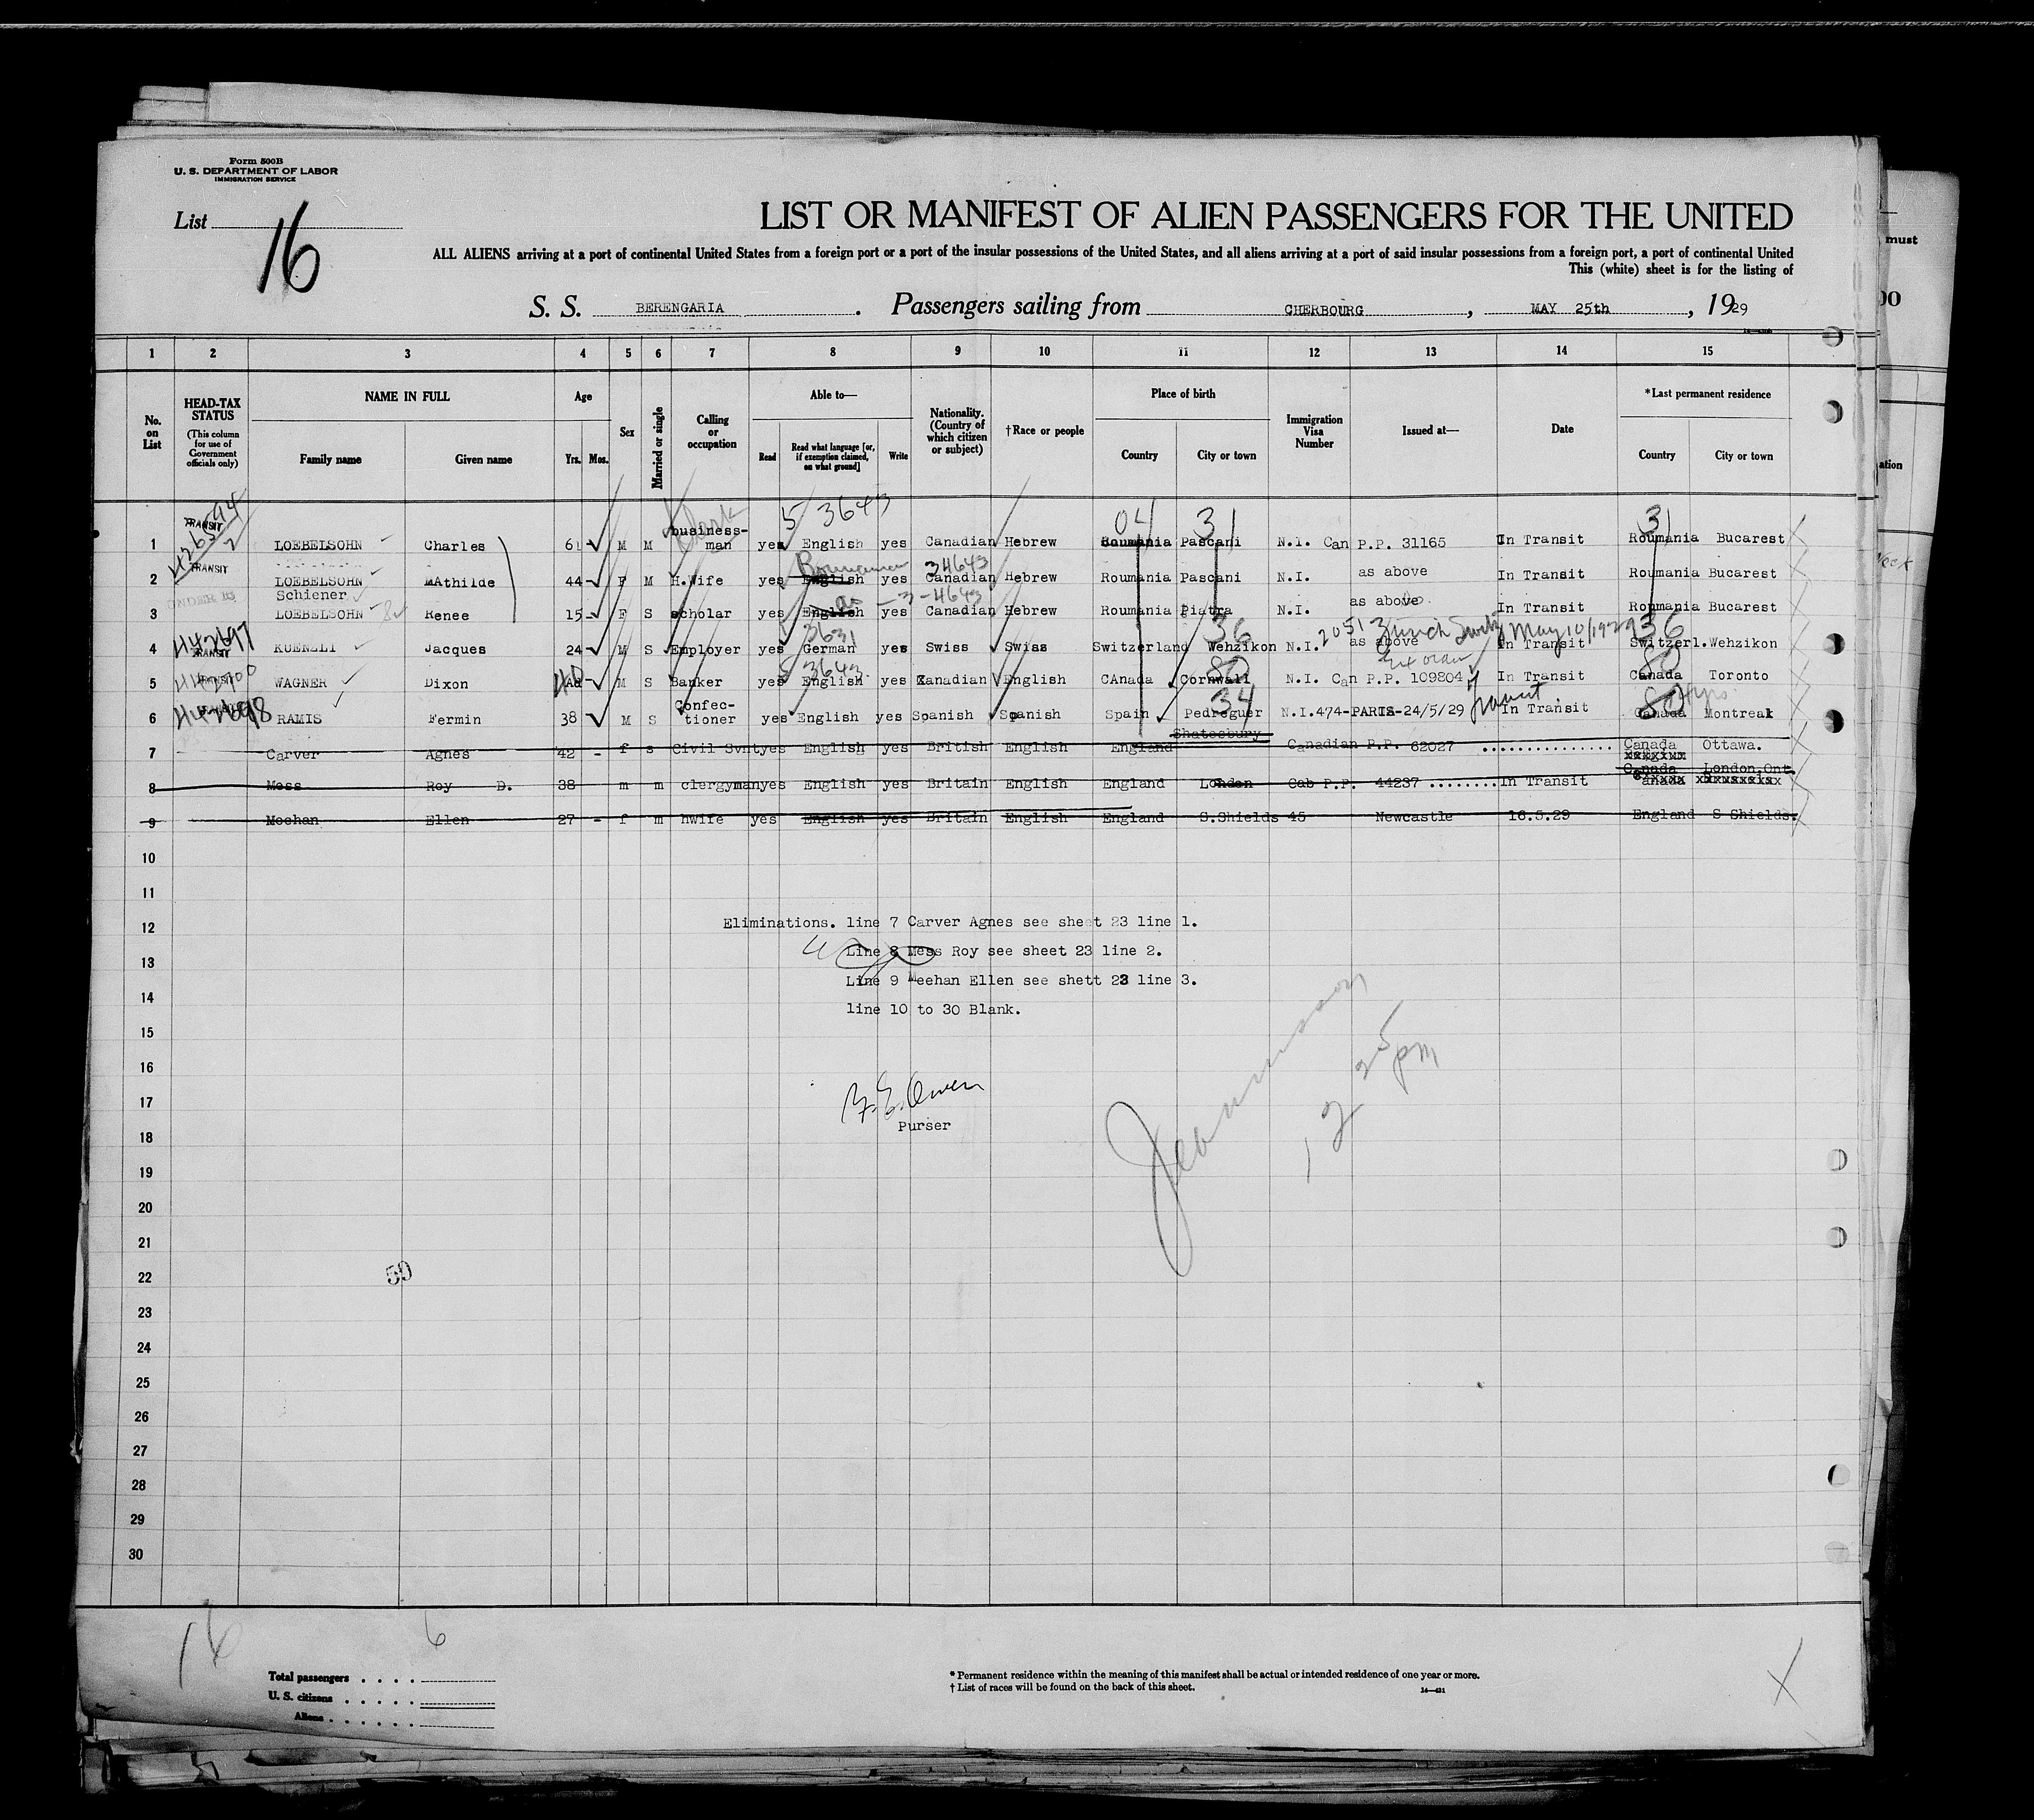 Form 500B
U. S. DEPARTMENT OF LABOR
IMMIGRATION SERVICE
List 16
LIST OR MANIFEST OF ALIEN PASSENGERS FOR THE UNITED
ALL ALIENS arriving at a port of continental United States from a foreign port or a port of the insular possessions of the United States, and all aliens arriving at a port of said insular possessions from a foreign port, a port of continental United
This (white) sheet is for the listing of
S. S. BERENGARIA. Passengers sailing from CHERBOURG, MAY 25th, 1929
1 2 3 4 5 6 7 8 9 10 11 12 13 14 15
No. on List
HEAD-TAX STATUS (This column for use of Government officials only)
NAME IN FULL Family name Given name
Age Yrs. Mos.
Sex
Married or single
Calling or occupation
Able to— Read Read what language [or, if exemption claimed, on what ground] Write
Nationality. (Country of which citizen or subject)
†Race or people
Place of birth Country City or town
Immigration Visa Number
Issued at—
Date
*Last permanent residence Country City or town
5 3643 04 31 31
1 TRANSIT LOEBELSOHN Charles 61 M M business-man yes English yes Canadian Hebrew Roumania Pascani N.I. Can P.P. 31165 In Transit Roumania Bucarest
34643
2 TRANSIT LOEBELSOHN MAthilde 44 F M H.Wife yes English yes Canadian Hebrew Roumania Pascani N.I. as above In Transit Roumania Bucarest
Schiener
3 UNDER 16 LOEBELSOHN Renee 15 F S scholar yes English yes Canadian Hebrew Roumania Piatra N.I. as above In Transit Roumania Bucarest
3631 36 20513 Zurich Switz May 10/1929 36
4 TRANSIT KUENZLI Jacques 24 M S Employer yes German yes Swiss Swiss Switzerland Wehzikon N.I. as above In Transit Switzerl. Wehzikon
5 3643 80 80
5 WAGNER Dixon 40 M S Banker yes English yes Canadian English CAnada Cornwall N.I. Can P.P. 109804 In Transit Canada Toronto
34
6 RAMIS Fermin 38 M S Confec-tioner yes English yes Spanish Spanish Spain Pedreguer N.I.474-PARIS-24/5/29 In Transit Canada Montreal
7 Carver Agnes 42 - f s Civil Svnt yes English yes British English England Shatesbury Canadian P.P. 62027 ............... Canada Ottawa.
8 Mess Roy D. 38 m m clergyman yes English yes Britain English England London Cab P.P. 44237 ........ In Transit Canada London,Ont.
9 Meehan Ellen 27 - f m hwife yes English yes Britain English England S.Shields 45 Newcastle 16.5.29 England S Shields.
10
11
12 Eliminations. line 7 Carver Agnes see sheet 23 line 1.
13 Line 8 Mess Roy see sheet 23 line 2.
14 Line 9 Meehan Ellen see shett 23 line 3.
line 10 to 30 Blank.
15
16
17
Purser
18
19
20
21
22 50
23
24
25
26
27
28
29
30
16 6
Total passengers
U. S. citizens
Aliens
* Permanent residence within the meaning of this manifest shall be actual or intended residence of one year or more.
† List of races will be found on the back of this sheet.
must
ation